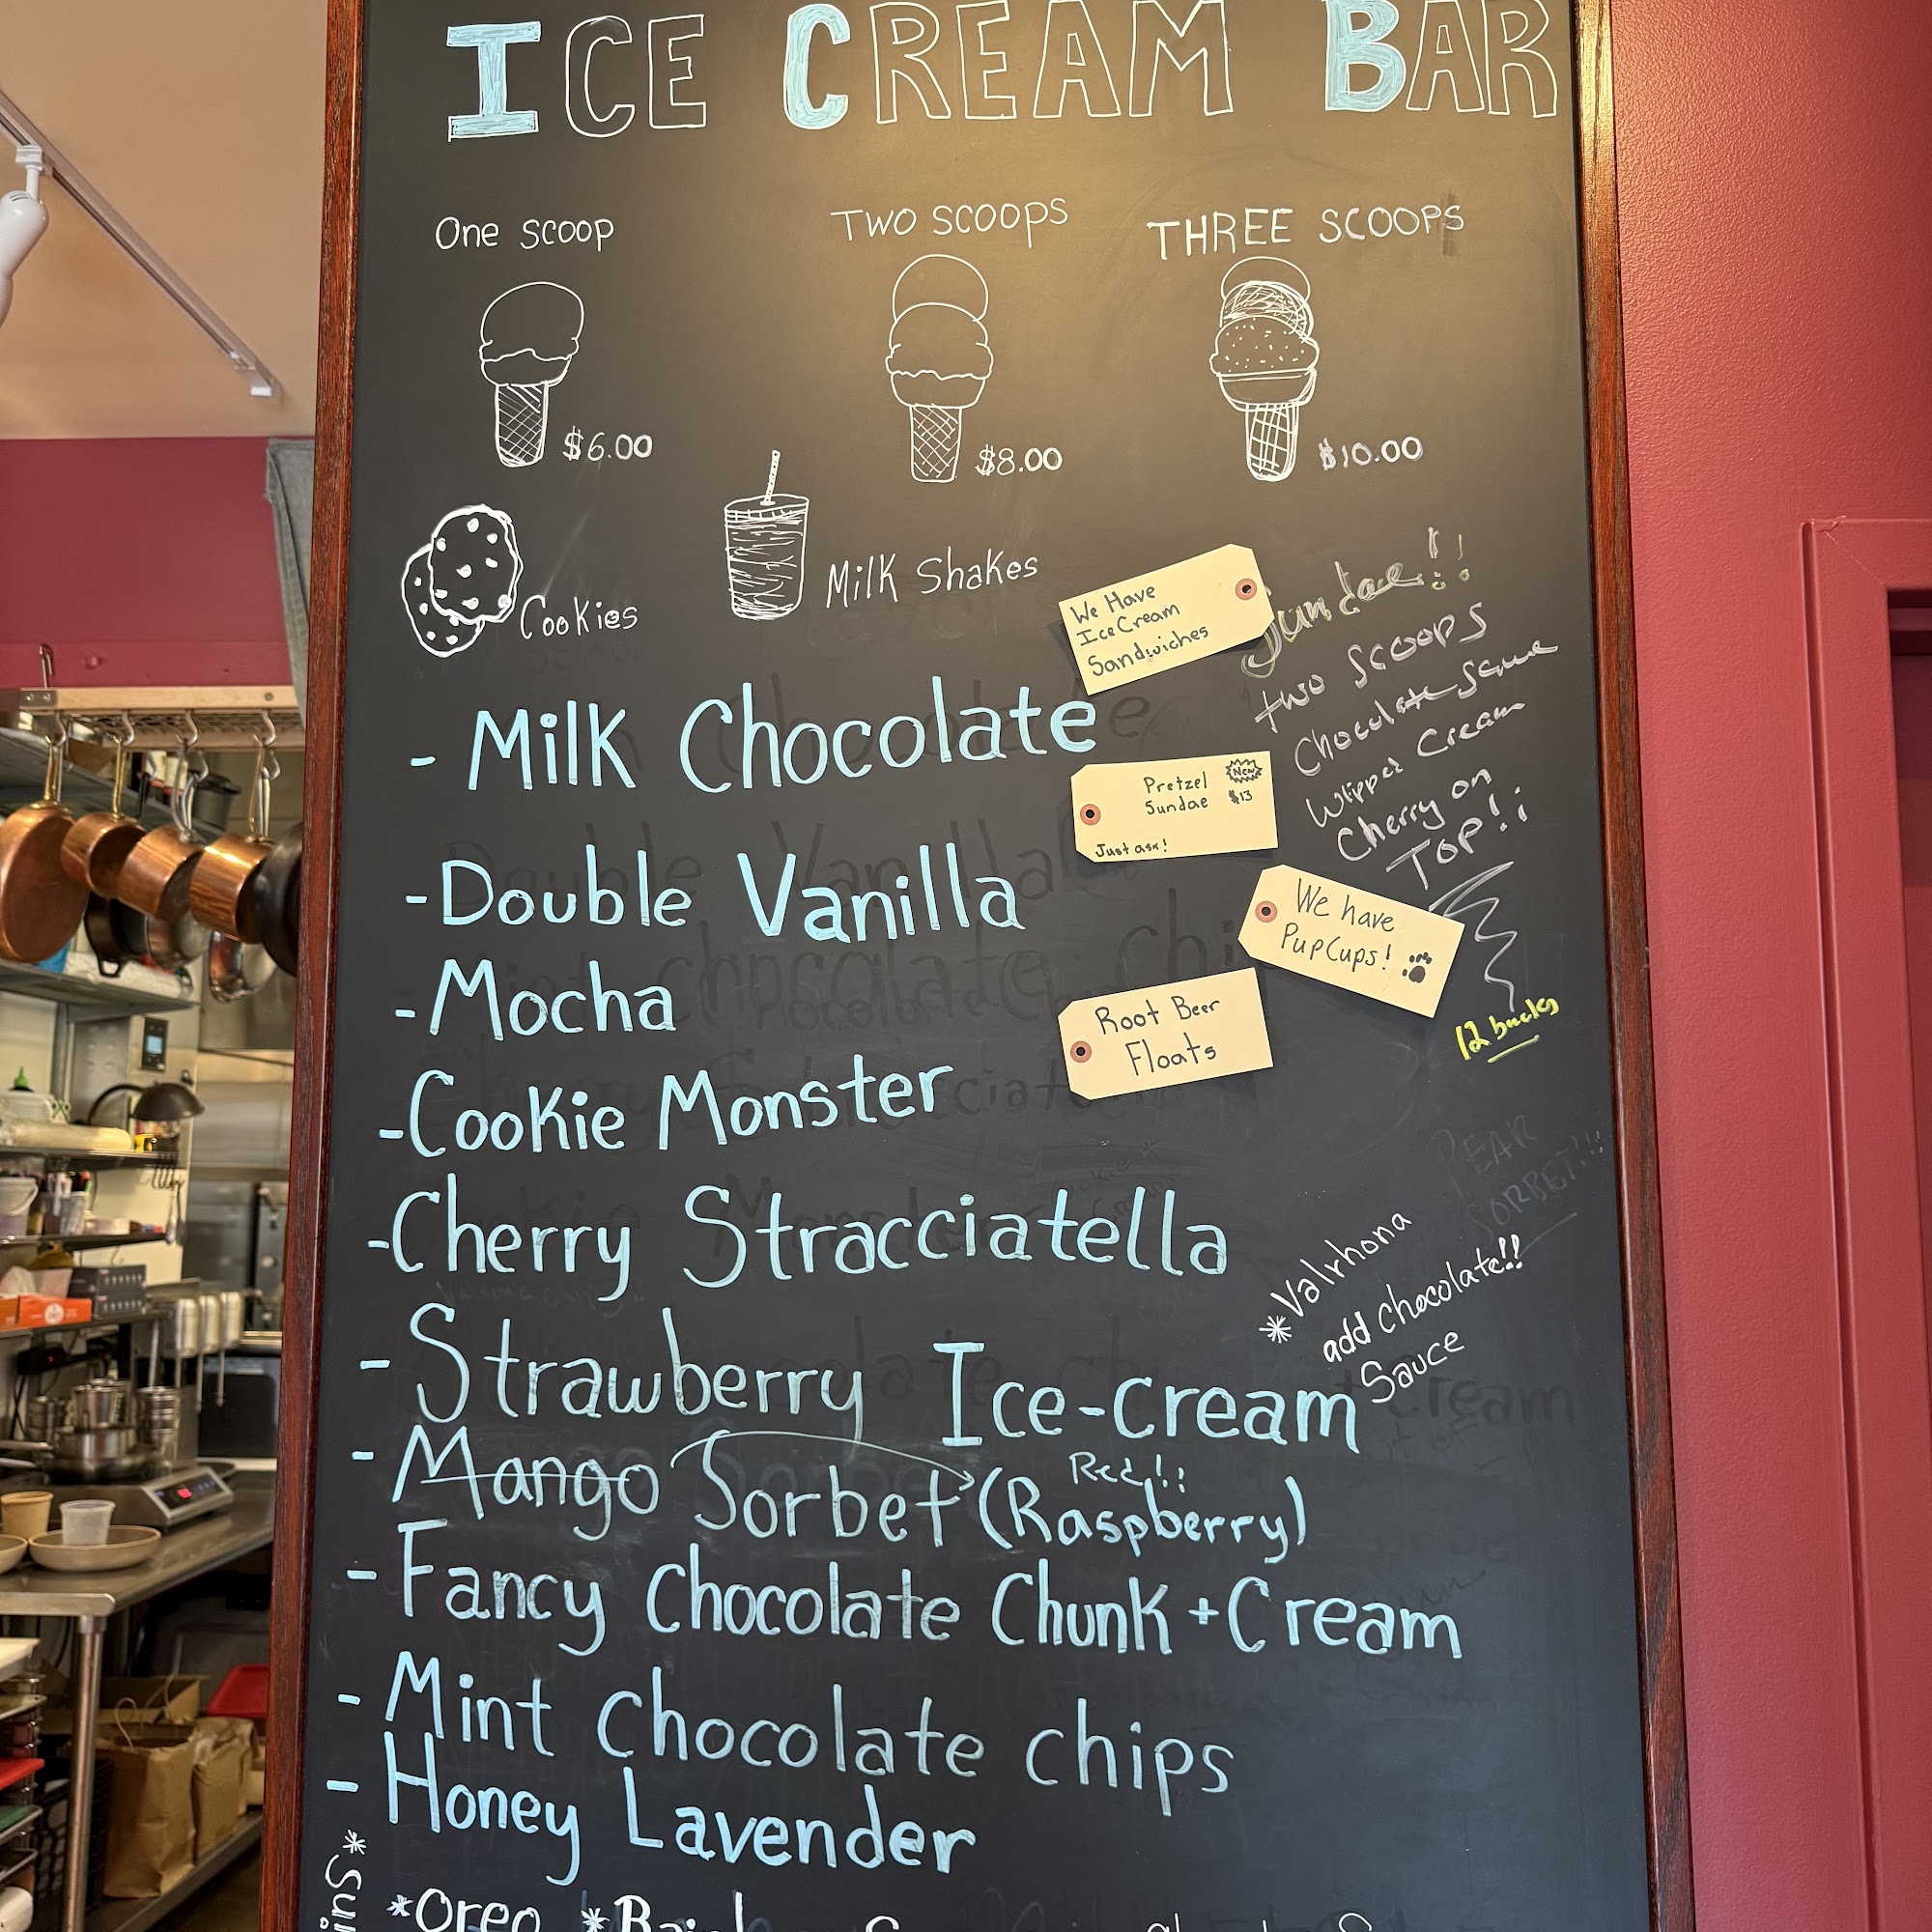 ICE CREAM BAR
One scoop
TWO SCOOPS
THREE SCOOPS
$6.00
$8.00
$10.00
Cookies
Milk Shakes
We Have
Ice Cream
Sandwiches
Sundae!!
two scoops
Chocolate Sauce
Wipped Cream
Cherry on
TOP!!
12 bucks
- Milk Chocolate
Pretzel
Sundae
New
$13
Just ask!
- Double Vanilla
We have
PupCups!
- Mocha
Root Beer
Floats
- Cookie Monster
PEAR
SORBET!!!
- Cherry Stracciatella
*Valrhona
add chocolate!!
Sauce
- Strawberry Ice-cream
- Mango Sorbet (Raspberry)
Red!!
- Fancy Chocolate Chunk + Cream
- Mint chocolate chips
- Honey Lavender
*Oreo